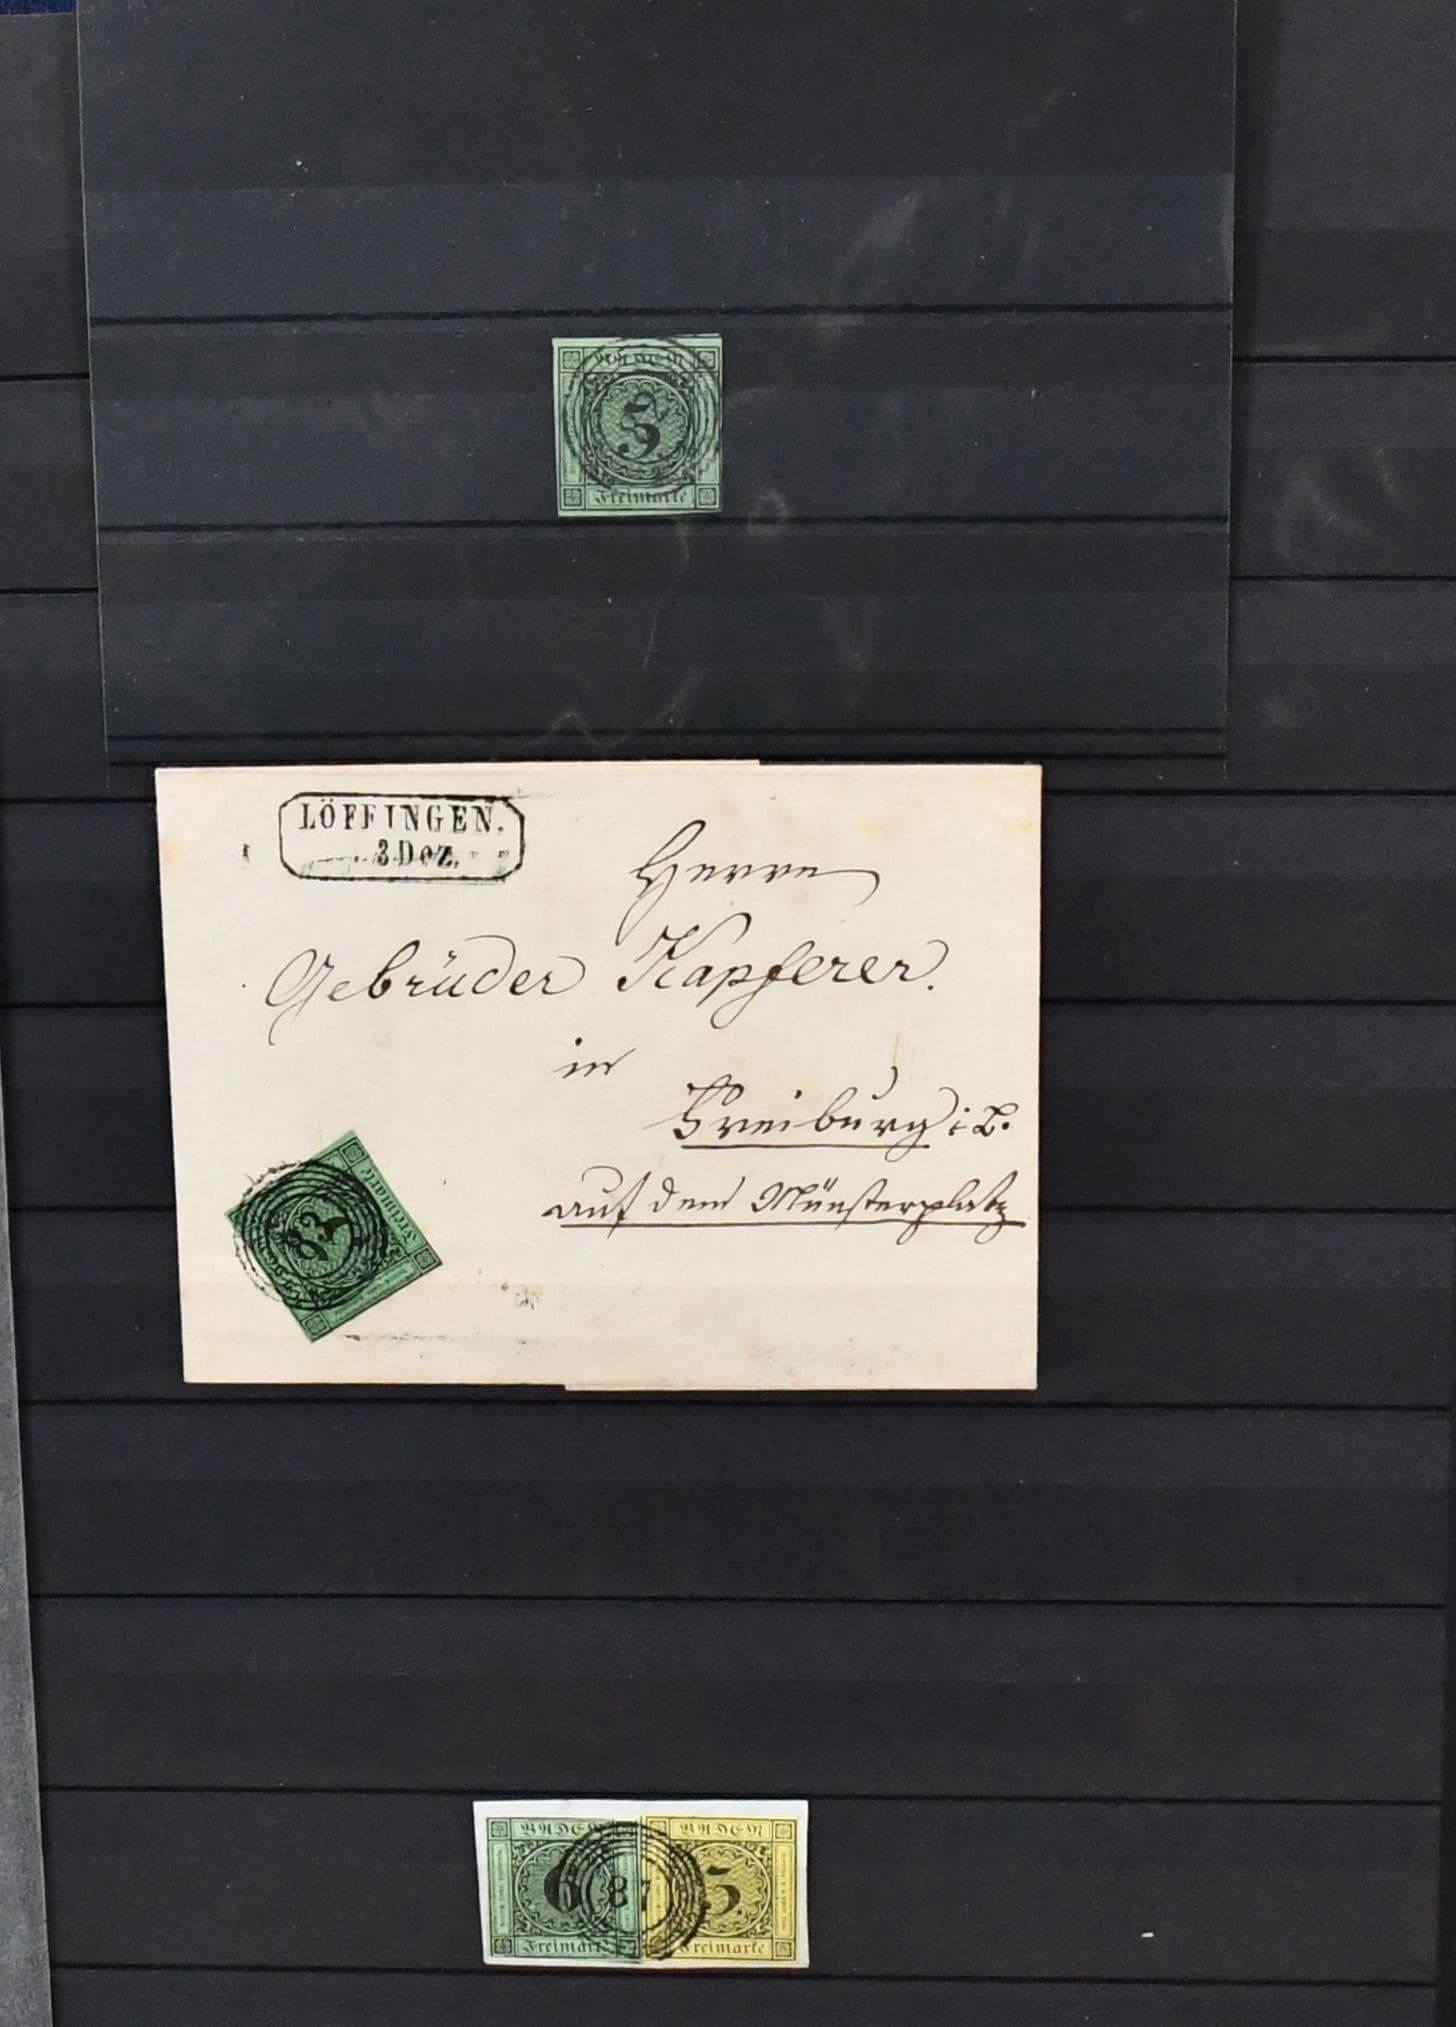 BADEN
3
Freimarke
LÖFFINGEN.
3 Dez.
Herrn
Gebrüder Kapferer.
in
Freiburg i. B.
auf dem Münsterplatz
83
Freimarke
BADEN BADEN
6 87 3
Freimarke Freimarke